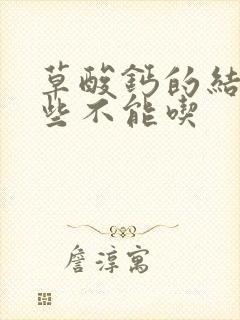 草酸鈣的結
些不能喫
詹淳寓